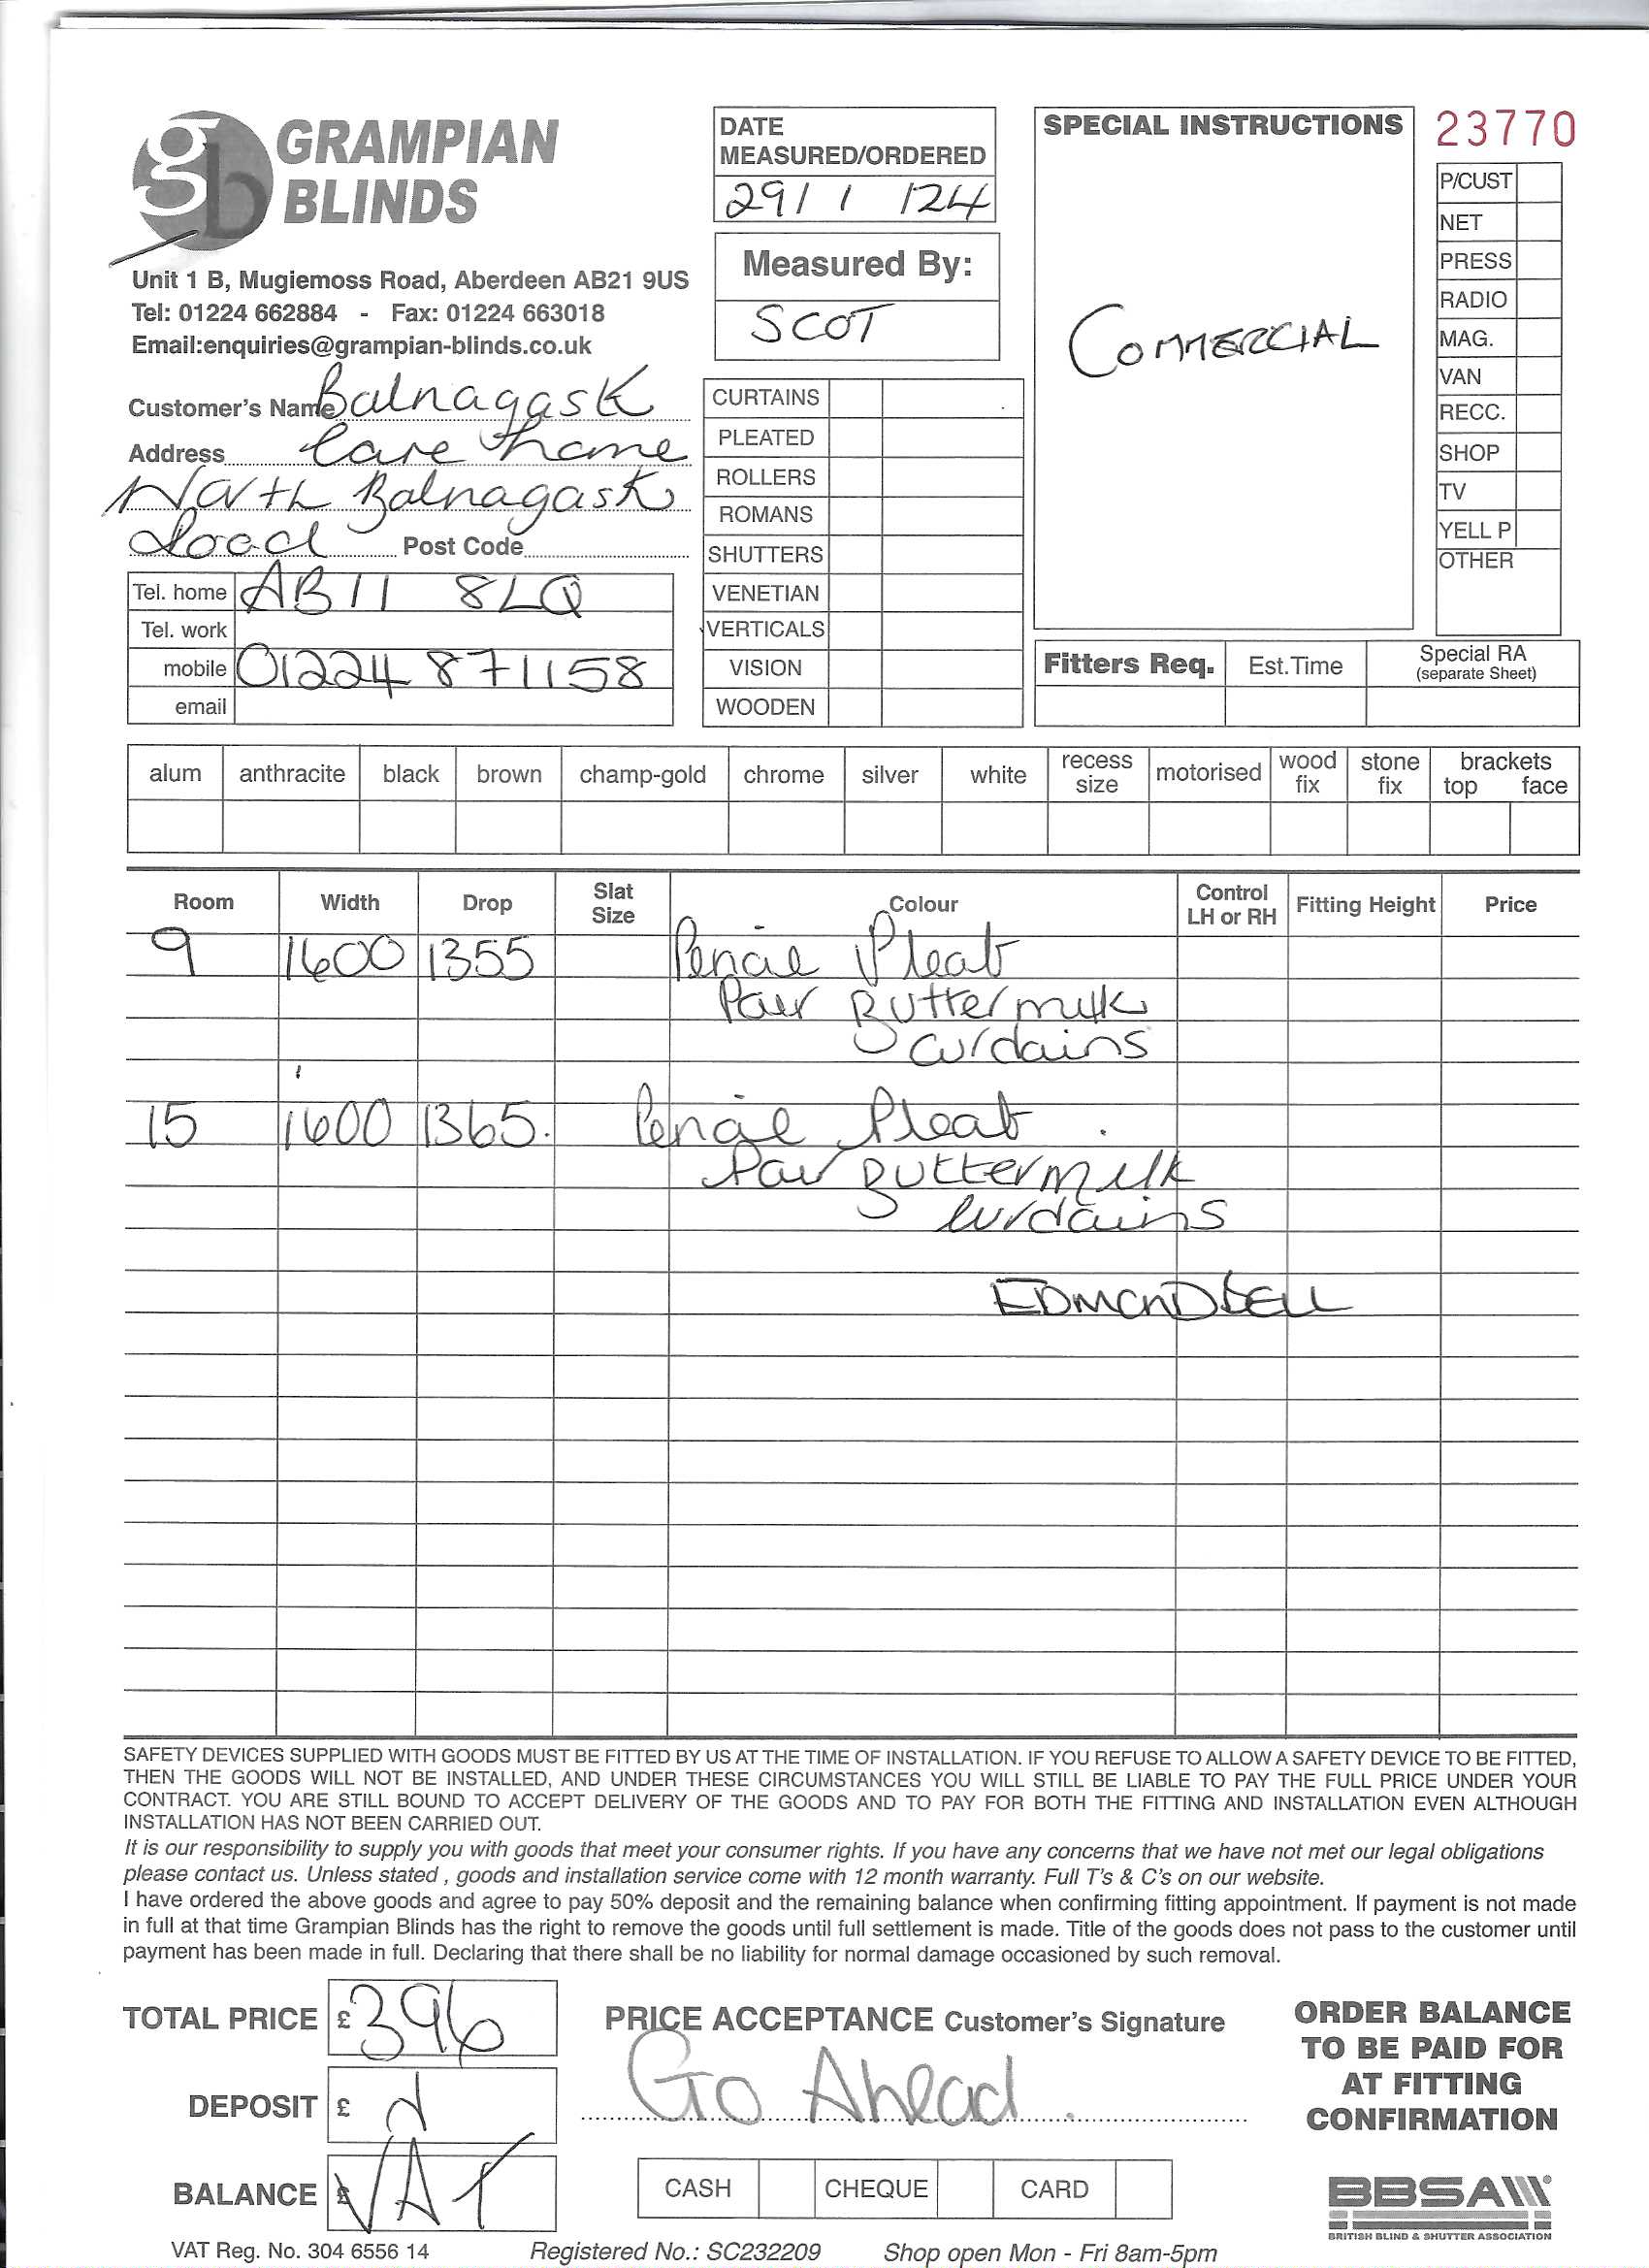 gb GRAMPIAN BLINDS
Unit 1 B, Mugiemoss Road, Aberdeen AB21 9US
Tel: 01224 662884 - Fax: 01224 663018
Email:enquiries@grampian-blinds.co.uk
DATE MEASURED/ORDERED
29/ 1 /24
Measured By:
SCOT
SPECIAL INSTRUCTIONS
COMMERCIAL
23770
P/CUST
NET
PRESS
RADIO
MAG.
VAN
RECC.
SHOP
TV
YELL P
OTHER
Customer's Name Balnagask
Address Care Home
North Balnagask
Road Post Code
Tel. home AB11 8LQ
Tel. work
mobile 01224 871158
email
CURTAINS
PLEATED
ROLLERS
ROMANS
SHUTTERS
VENETIAN
VERTICALS
VISION
WOODEN
Fitters Req. Est.Time Special RA (separate Sheet)
alum anthracite black brown champ-gold chrome silver white recess size motorised wood fix stone fix brackets top face
Room Width Drop Slat Size Colour Control LH or RH Fitting Height Price
9 1600 1355 Pencil Pleat
Pair Buttermilk
Curtains
15 1600 1365. Pencil Pleat.
Pair Buttermilk
Curtains
EDMOND BELL
SAFETY DEVICES SUPPLIED WITH GOODS MUST BE FITTED BY US AT THE TIME OF INSTALLATION. IF YOU REFUSE TO ALLOW A SAFETY DEVICE TO BE FITTED,
THEN THE GOODS WILL NOT BE INSTALLED, AND UNDER THESE CIRCUMSTANCES YOU WILL STILL BE LIABLE TO PAY THE FULL PRICE UNDER YOUR
CONTRACT. YOU ARE STILL BOUND TO ACCEPT DELIVERY OF THE GOODS AND TO PAY FOR BOTH THE FITTING AND INSTALLATION EVEN ALTHOUGH
INSTALLATION HAS NOT BEEN CARRIED OUT.
It is our responsibility to supply you with goods that meet your consumer rights. If you have any concerns that we have not met our legal obligations
please contact us. Unless stated , goods and installation service come with 12 month warranty. Full T's & C's on our website.
I have ordered the above goods and agree to pay 50% deposit and the remaining balance when confirming fitting appointment. If payment is not made
in full at that time Grampian Blinds has the right to remove the goods until full settlement is made. Title of the goods does not pass to the customer until
payment has been made in full. Declaring that there shall be no liability for normal damage occasioned by such removal.
TOTAL PRICE £ 396
DEPOSIT £
BALANCE £ VAT
PRICE ACCEPTANCE Customer's Signature
Go Ahead.
CASH CHEQUE CARD
ORDER BALANCE
TO BE PAID FOR
AT FITTING
CONFIRMATION
BBSA
BRITISH BLIND & SHUTTER ASSOCIATION
VAT Reg. No. 304 6556 14 Registered No.: SC232209 Shop open Mon - Fri 8am-5pm